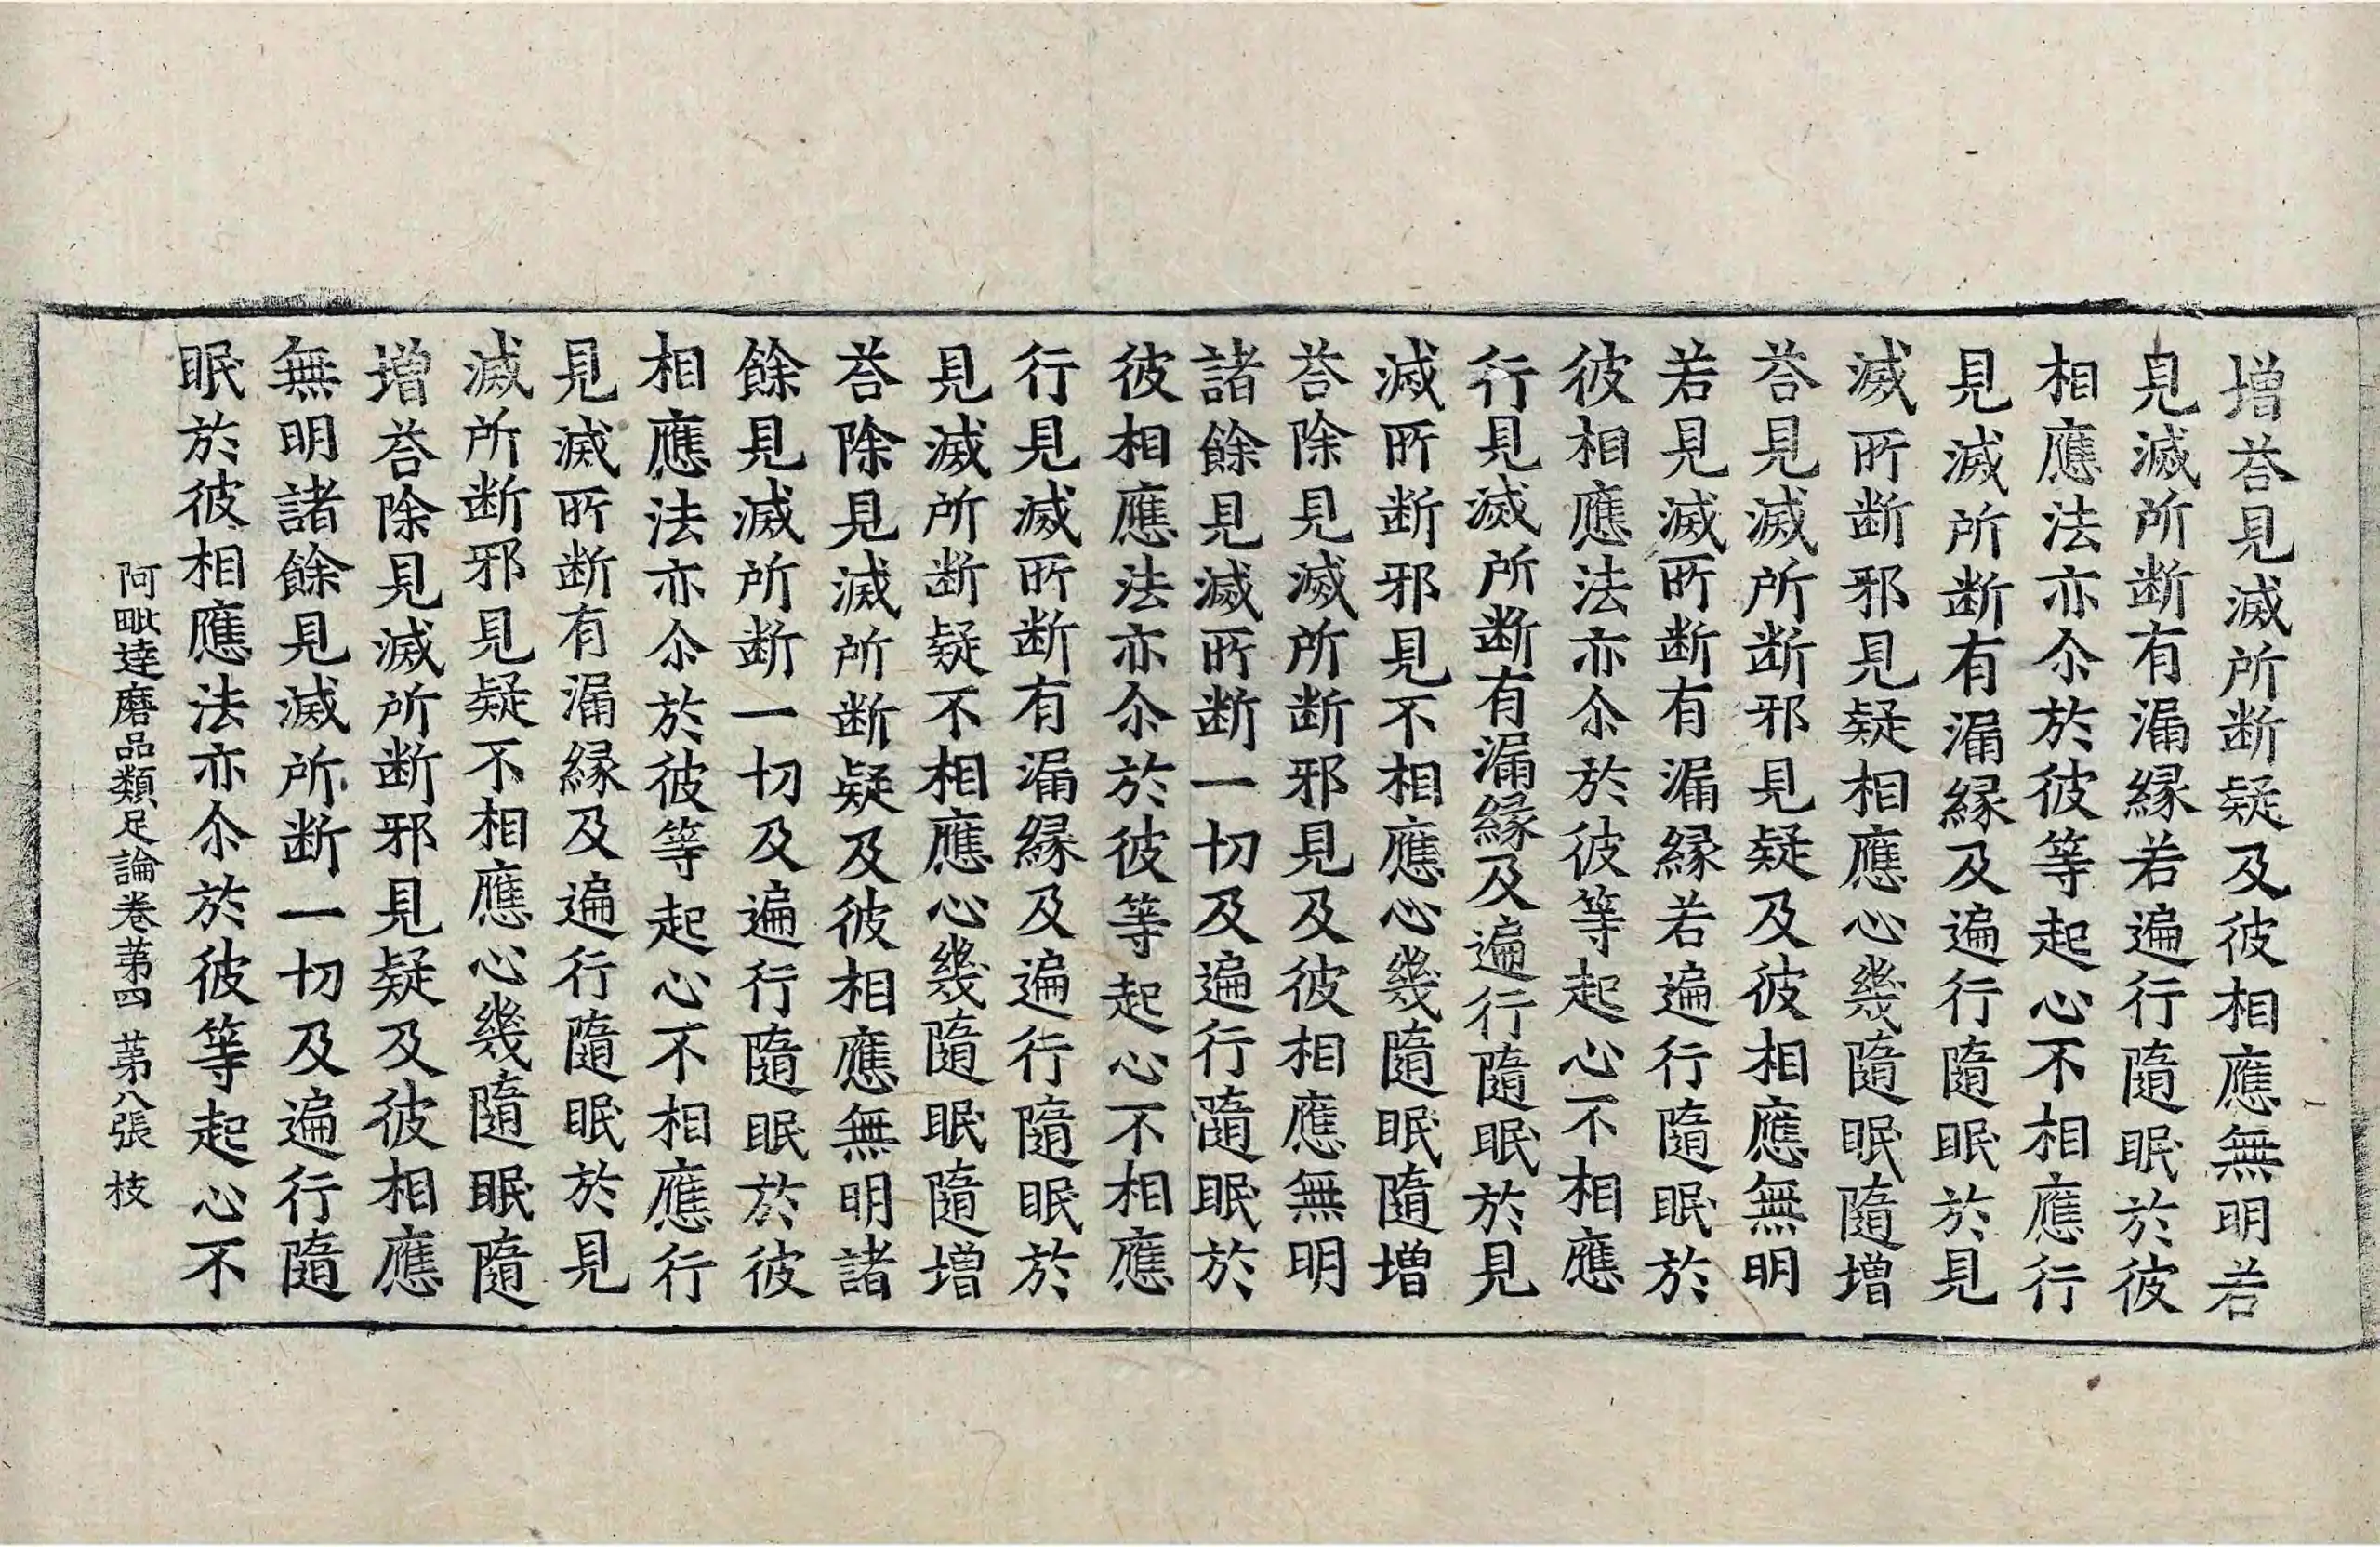 増荅見滅所断疑及彼相應無明若
見滅所断有漏縁若遍行隨眠於彼
相應法亦尒於彼等起心不相應行
見滅所断有漏縁及遍行隨眠於見
滅所断邪見疑相應心幾隨眠隨増
荅見滅所断邪見疑及彼相應無明
若見滅所断有漏縁若遍行隨眠於
彼相應法亦尒於彼等起心不相應
行見滅所断有漏縁及遍行隨眠於見
滅所断邪見不相應心幾隨眠隨増
荅除見滅所断邪見及彼相應無明
諸餘見滅所断一切及遍行隨眠於
彼相應法亦尒於彼等起心不相應
行見滅所断有漏縁及遍行隨眠於
見滅所断疑不相應心幾隨眠隨増
荅除見滅所断疑及彼相應無明諸
餘見滅所断一切及遍行隨眠於彼
相應法亦尒於彼等起心不相應行
見滅所断有漏縁及遍行隨眠於見
滅所断邪見疑不相應心幾隨眠隨
増荅除見滅所断邪見疑及彼相應
無明諸餘見滅所断一切及遍行隨
眠於彼相應法亦尒於彼等起心不
阿毗達磨品類足論卷苐四 苐八張 枝